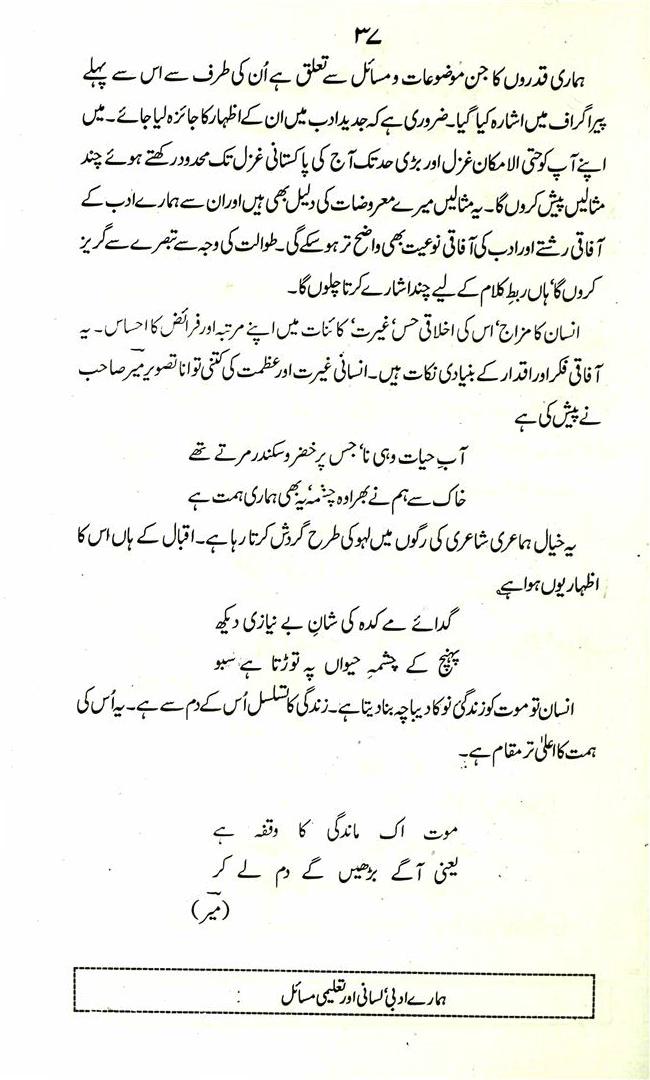 ۳۷
ہماری قدروں کا جن موضوعات و مسائل سے تعلق ہے اُن کی طرف سے اس سے پہلے
پیراگراف میں اشارہ کیا گیا۔ ضروری ہے کہ جدید ادب میں ان کے اظہار کا جائزہ لیا جائے۔ میں
اپنے آپ کو حتی الامکان غزل اور بڑی حد تک آج کی پاکستانی غزل تک محدود رکھتے ہوئے چند
مثالیں پیش کروں گا۔ یہ مثالیں میرے معروضات کی دلیل بھی ہیں اور ان سے ہمارے ادب کے
آفاقی رشتے اور ادب کی آفاقی نوعیت بھی واضح تر ہو سکے گی۔ طوالت کی وجہ سے تبصرے سے گریز
کروں گا‘ ہاں ربطِ کلام کے لیے چند اشارے کرتا چلوں گا۔
انسان کا مزاج‘ اس کی اخلاقی حس‘ غیرت‘ کائنات میں اپنے مرتبہ اور فرائض کا احساس۔ یہ
آفاقی فکر اور اقدار کے بنیادی نکات ہیں۔ انسانی غیرت اور عظمت کی کتنی توانا تصویر میؔر صاحب
نے پیش کی ہے
آبِ حیات وہی نا‘ جس پر خضر و سکندر مرتے تھے
خاک سے ہم نے بھرا وہ چشمہ‘ یہ بھی ہماری ہمت ہے
یہ خیال ہماعری شاعری کی رگوں میں لہو کی طرح گردش کرتا رہا ہے۔ اقبال کے ہاں اس کا
اظہار یوں ہوا ہے
گدائے مے کدہ کی شانِ بے نیازی دیکھ
پہنچ کے چشمۂ حیواں پہ توڑتا ہے سبو
انسان تو موت کو زندگیٔ نو کا دیباچہ بنا دیتا ہے۔ زندگی کا تسلسل اُس کے دم سے ہے۔ یہ اُس کی
ہمت کا اعلیٰ تر مقام ہے۔
موت اک ماندگی کا وقفہ ہے
یعنی آگے بڑھیں گے دم لے کر
(میؔر)
ہمارے ادبی‘ لسانی اور تعلیمی مسائل :